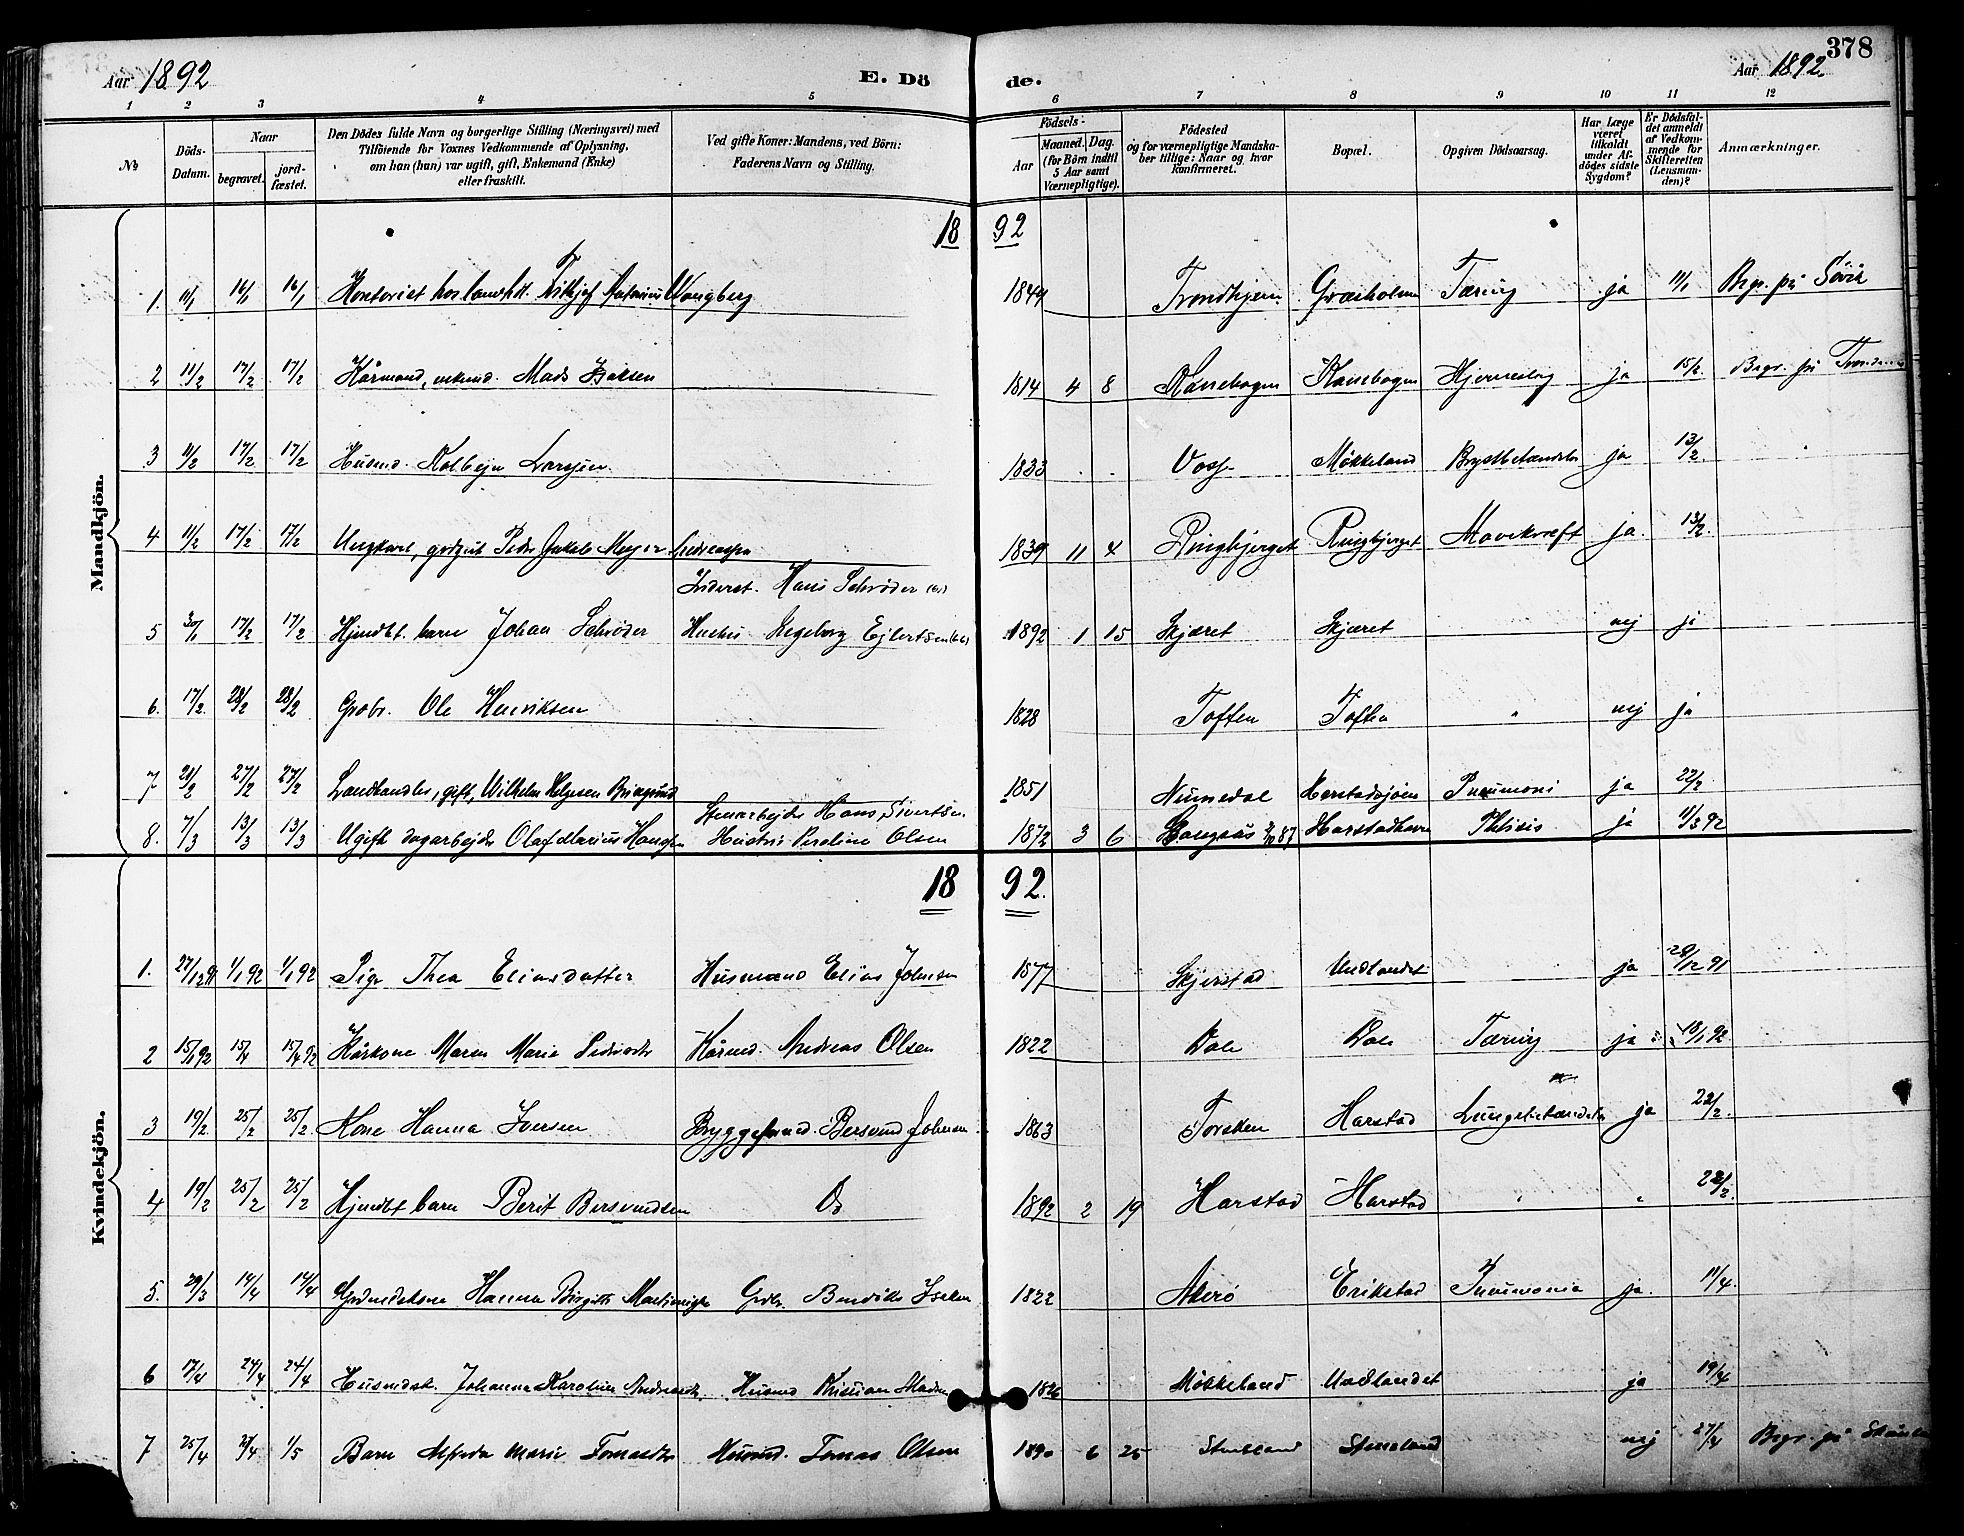 378
Aar 1892 E. Dö de. Aar 1892.
1 2 3 4 5 6 7 8 9 10 11 12
№
Döds-Datum.
Naar
begravet.
jordfæstet.
Den Dödes fulde Navn og borgerlige Stilling (Næringsvei) med
Tilföiende for Voxnes Vedkommende af Oplysning,
om han (hun) var ugift, gift, Enkemand (Enke)
eller fraskilt.
Ved gifte Koner: Mandens, ved Börn:
Faderens Navn og Stilling.
Födsels-
Aar
Maaned. Dag.
(for Börn indtil
5 Aar samt
Værnepligtige).
Födested
og for værnepligtige Mandska-
ber tillige: Naar og hvor
konfirmeret.
Bopæl.
Opgiven Dödsaarsag.
Har Læge
været
tilkaldt
under Af-
dödes sidste
Sygdom?
Er Dödsfal-
det anmeldt
af Vedkom-
mende for
Skifteretten
(Lensman-
den)?
Anmærkninger.
Mandkjön.
18 92
1. 11/1 16/1 16/1 Wangberg 1849 Trondhjem Græsholmen Tæring ja 11/1 Begr. på Sörvik
2 11/2 17/2 17/2 Kårmand, enkemd. Mads Isaksen 1814 4 8 Kanebogen Kanebogen Hjerneslag ja 15/2 Begr. på
3 11/2 17/2 17/2 Husmd. Kolbejn Larssen 1833 Voss Møkkeland Brystbetændelse ja 13/2
4 11/2 17/2 17/2 Ungkarl, Peder Jakob Meyer Andreassen 1839 11 4 Ringbjerget Ringbjerget Mavekræft ja. 13/2
Inderst. Hans Schrøder
5 30/1 17/2 17/2 Hjemdbt. barn Johan Schrøder Hustru Ingeborg Ejlertsen 1892 1 15 Skjæret Skjæret nej ja
6. 17/2 28/2 28/2 Grbr. Ole Henriksen 1828 Toften Toften " nej ja
7 21/2 27/2 27/2 Landhandler, gift, Wilhelm Helgesen 1851 Numedal Harstadsjøen Pneumoni ja 22/2
Stenarbejder Hans Sivertsen
8. 7/3 13/3 13/3 Ugift dagarbejder Olaf Marius Hanssen Hustru Olsen 1872 3 6 87 Harstadhavn Phtisis ja 11/3 92
Kvindekjön.
18 92.
1. 27/12 91 1/1 92 1/1 92 Pige Thea Eliasdatter Husmand Elias Johnsen 1877 Skjerstad Undlandet ja 28/12 91
2 15/1 92 Kårkone Maren Marie Pedersdtr Kårmd. Andreas Olsen 1822 Dale Dale Tæring ja 18/1 92
3 19/2 25/2 25/2 Kone Hanna Iversen Bryggeformd. Bersvend Johnsen 1863 Torsken Harstad Lungebetændelse ja 22/2.
4 19/2 25/2 25/2 Hjemdbt barn Berit Bersvendsen Do 1892 2 19 Harstad Harstad " " 22/2.
5. 29/3 14/4 14/4 Hanna Birgitte Grbr. Bendiks 1822 Akerö Erikstad Pneumonia ja. 11/4.
6 17/4 24/4 24/4 Husmdsk. Johanna Karoline Andreasdtr. Husmd Kristian Madsen 1826 Møkkeland Undlandet ja 19/4
7 25/4 1/5 Barn Alfrida Marie Tomasdtr Husmd. Tomas Olsen 1890 6 25 Stensland Stensland nej 27/4 Begr. på